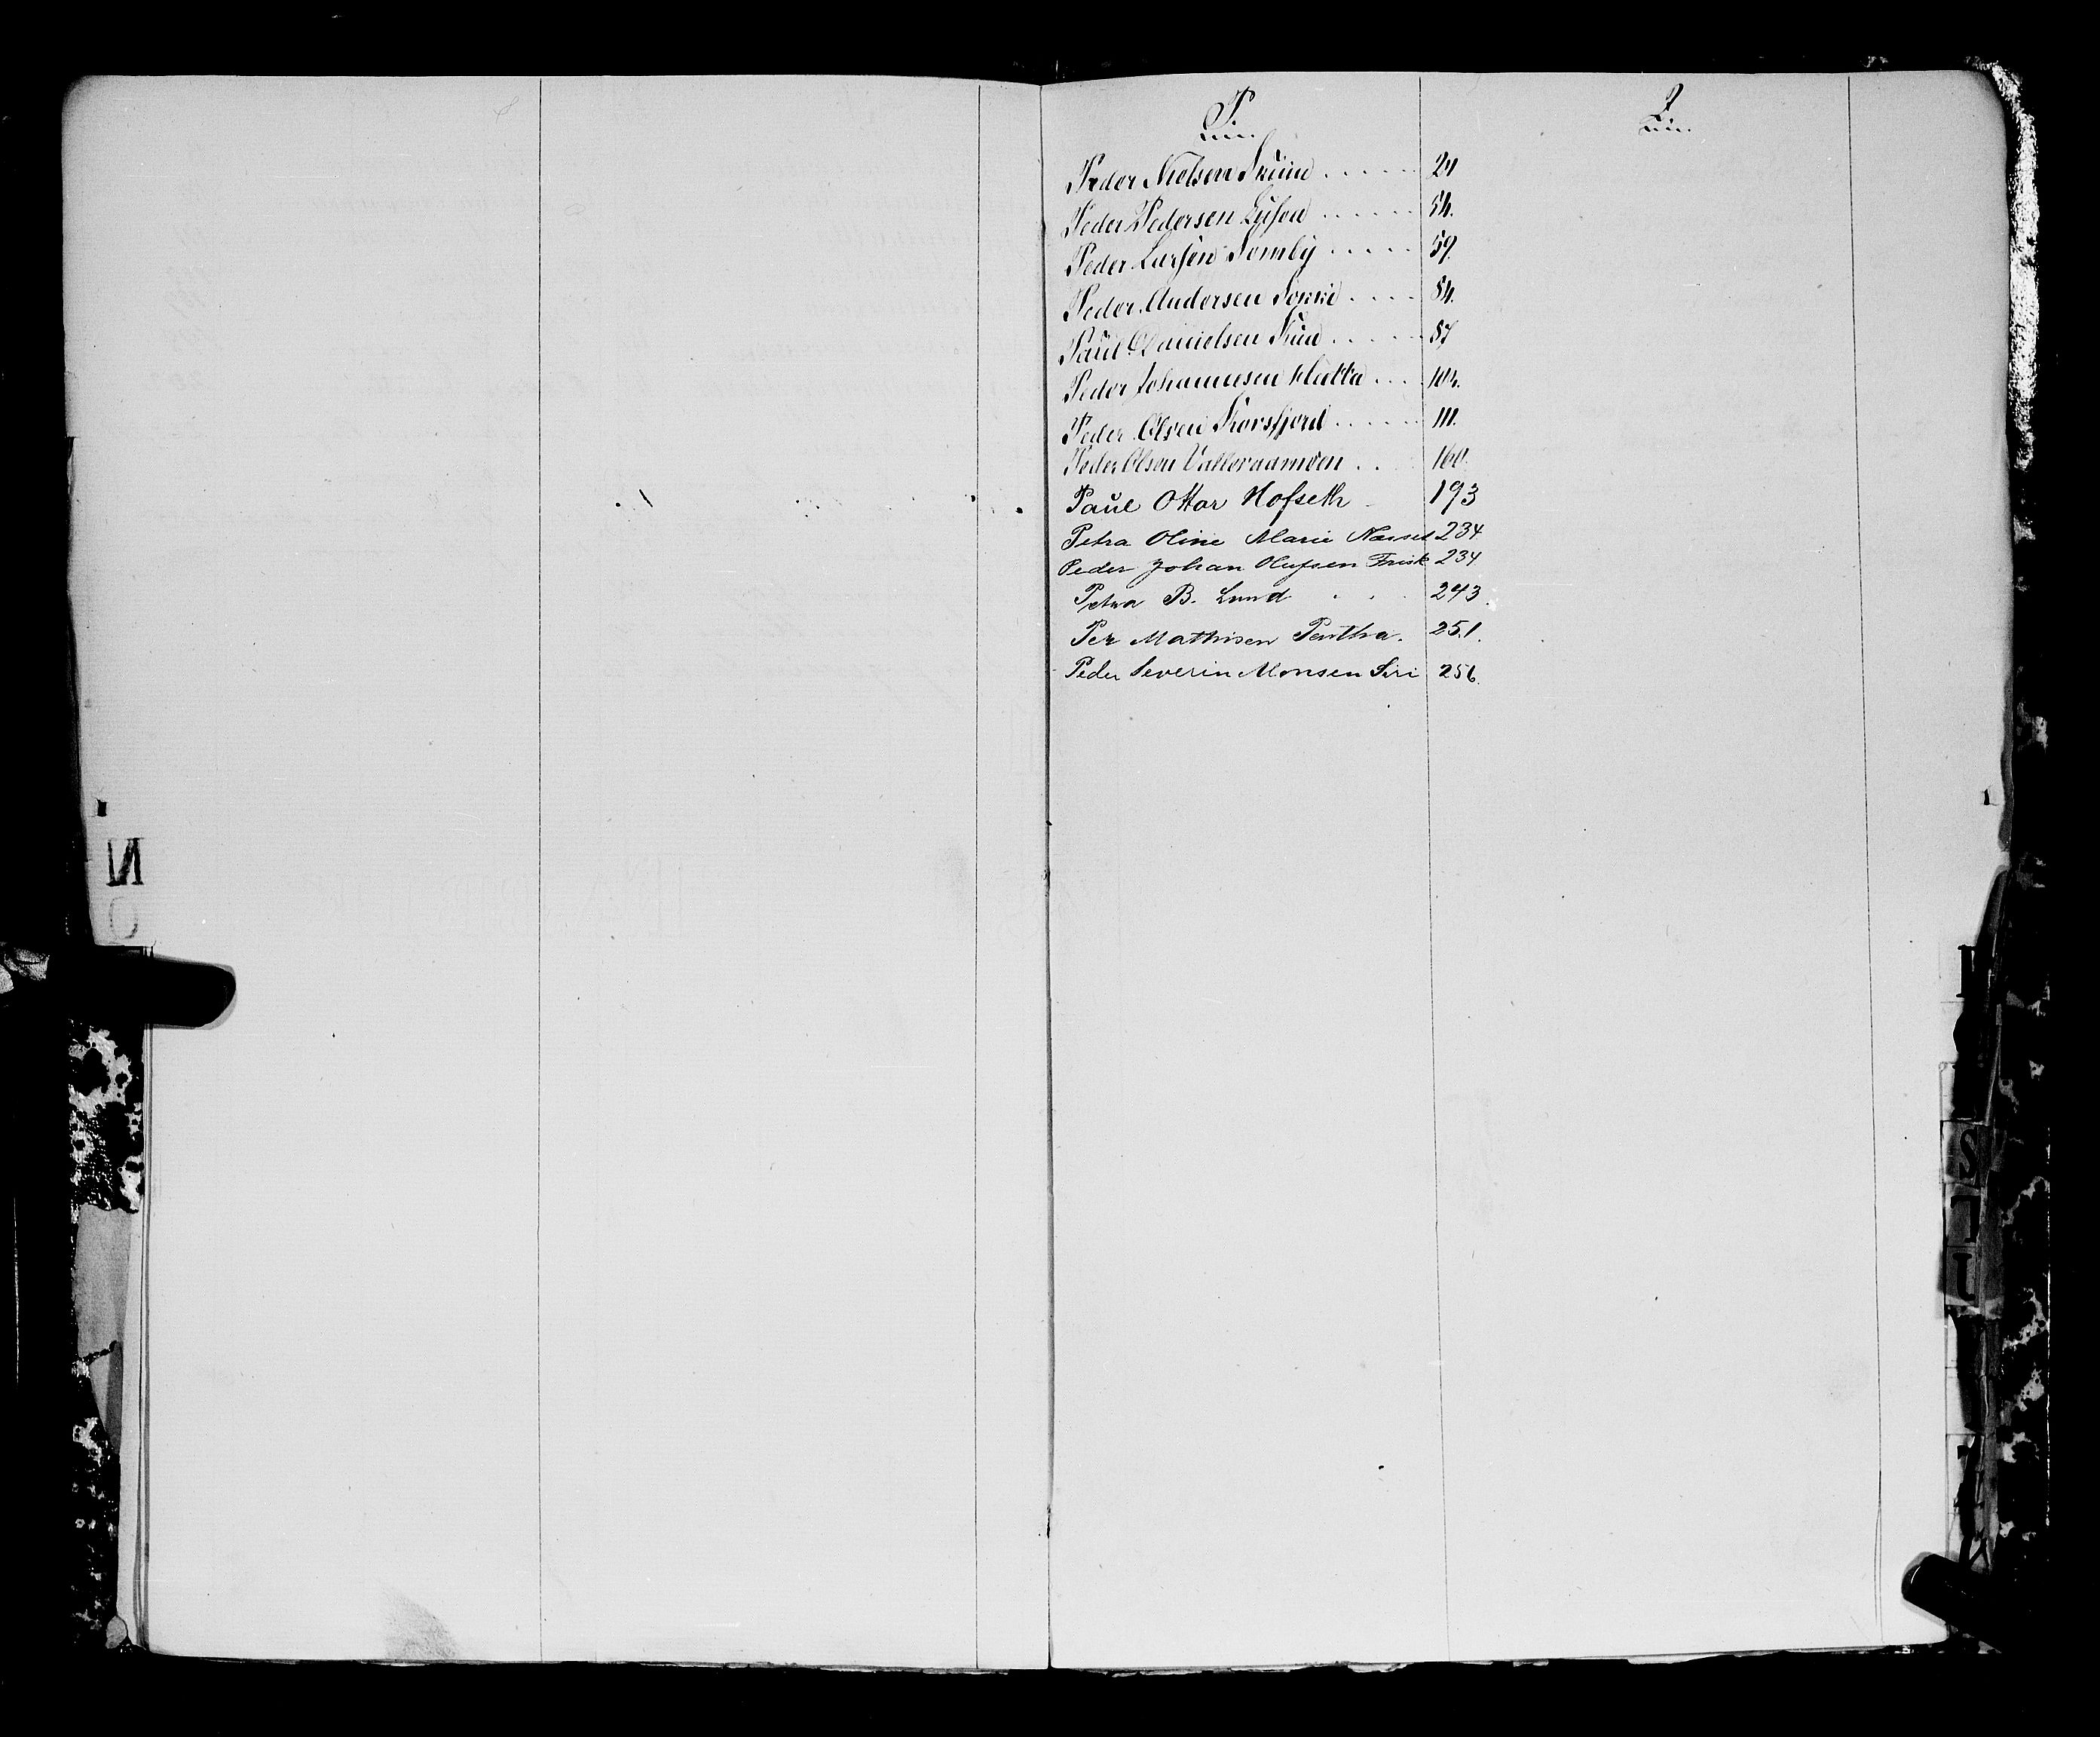 P.
Q
Peder Nielsen 24
Peder Pedersen 54.
Peder Larsen Somby 59.
Peder Andersen Sokki 84.
Paul Danielsen 87
Peder Johannesen Hætta 104.
Peder Olsen Korsfjord 111.
Peder Olsen 160.
Paul Ottar Hofseth 193
Petra Oline Marie Næsset 234
Peder Johan Olufsen Frisk 234
Petra B. Lund 243.
Per Mathisen Pentha. 251.
Peder Severin Monsen Siri 256.
N
O